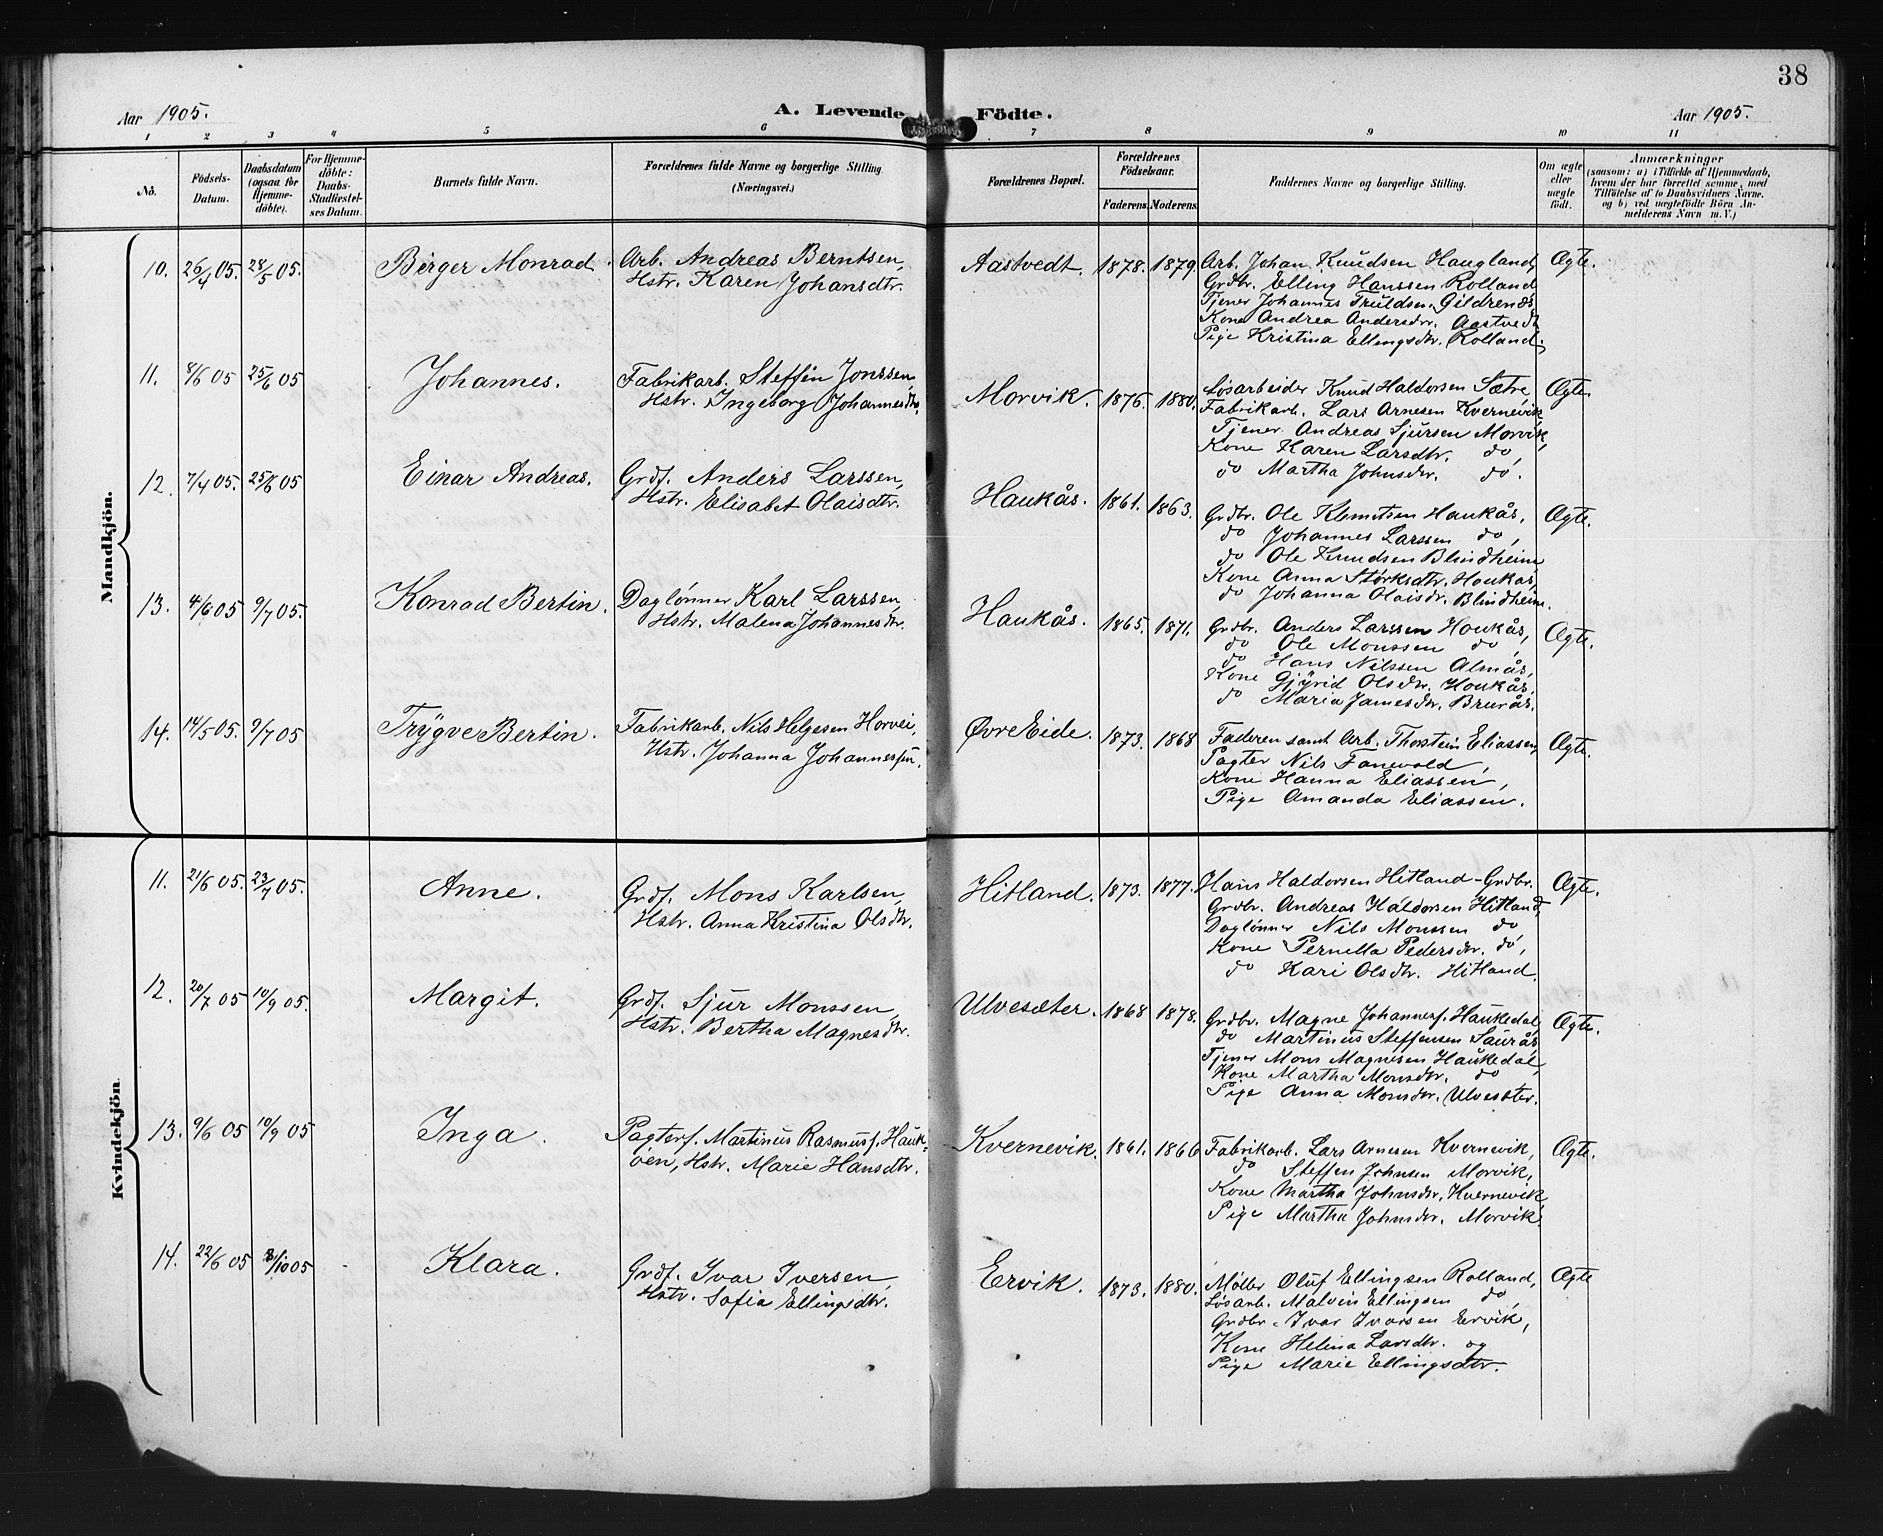 38
Aar 1905. A. Levende Födte. Aar 1905.
1 2 3 4 5 6 7 8 9 10 11
No. Födsels-Datum. Daabsdatum (ogsaa for Hjemme-döbte). For Hjemme-döbte: Daabs-Stadfæstel-ses Datum. Barnets fulde Navn. Forældrenes fulde Navne og borgerlige Stilling (Næringsvei.) Forældrenes Bopæl. Forældrenes Födselsaar. Faderens. Moderens. Faddernes Navne og borgerlige Stilling. Om ægte eller uægte födt. Anmærkninger (saasom: a) i Tilfælde af Hjemmedaab, hvem der har forrettet samme, med Tilföielse af to Daabsvidners Navne. og b) ved uægtefödte Börn An-melderens Navn m. V.)
Mandkjön.
10. 26/4 05. 28/5 05. Birger Monrad. Arb. Andreas Berntsen, Aastvedt. 1878. 1879. Arb. Johan Knudsen Haugland, Ægte.
Hstr. Karen Johansdtr. Grdbr. Elling Hanssen Rolland
Tjener Johannes Truldsen, Gildrenes
Kone Andrea Andersdtr. Aastvedt
Pige Kristina Ellingsdtr. Rolland.
11. 8/6 05 25/6 05 Johannes. Fabrikarb. Steffen Jonssen, Morvik. 1876. 1880. Løsarbeider Knud Haldorsen Sætre, Ægte.
Hstr. Ingeborg Johannesdtr. Fabrikarb. Lars Arnesen Kvernevik,
Tjener Andreas Sjursen Morvik,
Kone Karen Larsdtr. do,
do Martha Johnsdtr. do.
12. 7/4 05. 25/6 05 Einar Andreas. Grdf. Anders Larssen, Haukås. 1861. 1863. Grdbr. Ole Klemetsen Haukås, Ægte.
Hstr. Elisabet Olaisdtr. do Johannes Larssen do,
do Ole Knudsen Blindheim
Kone Anna Størksdtr. Haukås,
do Johanna Olaisdr. Blindheim.
13. 4/6 05 9/7 05. Konrad Bertin. Daglønner Karl Larssen, Haukås. 1865. 1871. Grdbr. Anders Larssen Houkås, Ægte.
Hstr. Malena Johannesdtr. do Ole Monssen do,
do Hans Nilssen Almås,
Kone Gjyrid Olsdtr. Houkås,
do Maria Jamesdtr. Brurås.
14. 14/5 05. 9/7 05 Trygve Bertin. Fabrikarb. Nils Helgesen Horvei, Øvre Eide. 1873. 1868 Faderen samt Arb. Thorstein Eliassen, Ægte.
Hstr. Johanna Johannessen. Pagter Nils Fanevold,
Kone Hanna Eliassen,
Pige Amanda Eliassen.
Kvindekjön.
11. 21/6 05. 23/7 05. Anne. Grdf. Mons Karlsen, Hitland. 1873. 1877. Hans Haldorsen Hitland - Grdbr. Ægte.
Hstr. Anna Kristina Olsdtr. Grdbr. Andreas Haldorsen Hitland,
Daglønner Nils Monssen do,
Kone Pernella Pedersdtr. do,
do Kari Olsdtr. Hitland
12. 20/7 05 10/9 05. Margit. Grdf. Sjur Monssen, Ulvesæter. 1868 1878. Grdbr. Magne Johannesf. Haukedal, Ægte.
Hstr. Bertha Magnesdtr. do Martinus Steffensen Saurås
Tjener Mons Magnesen Haukedal,
Kone Martha Monsdtr. do
Pige Anna Monsdtr. Ulvesæter.
13. 9/6 05 10/9 05 Inga. Pagterf. Martinus Rasmusf. Hauk- Kvernevik. 1861. 1866 Fabrikarb. Lars Arnesen Kvernevik, Ægte.
øen, Hstr. Marie Hansdtr. do Steffen Johnsen Morvik,
Kone Martha Johnsdtr. Kvernevik,
Pige Martha Johnsdtr. Morvik
14. 22/6 05 8/10 05 Klara. Grdf. Ivar Iversen, Eervik. 1873. 1880. Møller Oluf Ellingsen Rolland, Ægte
Hstr. Sofia Ellingsdtr. Løsarb. Malvin Ellingsen do,
Grdbr. Ivar Ivarsen Ervik,
Kone Helina Larsdtr. og
Pige Marie Ellingsdtr.